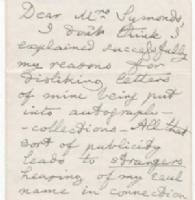 Dear Mrs Symonds,
I don't think I
explained successfully
my reasons for
disliking letters
of mine being put
into autograph-
-collections - All that
sort of publicity
leads to strangers
hearing of my
name in connection